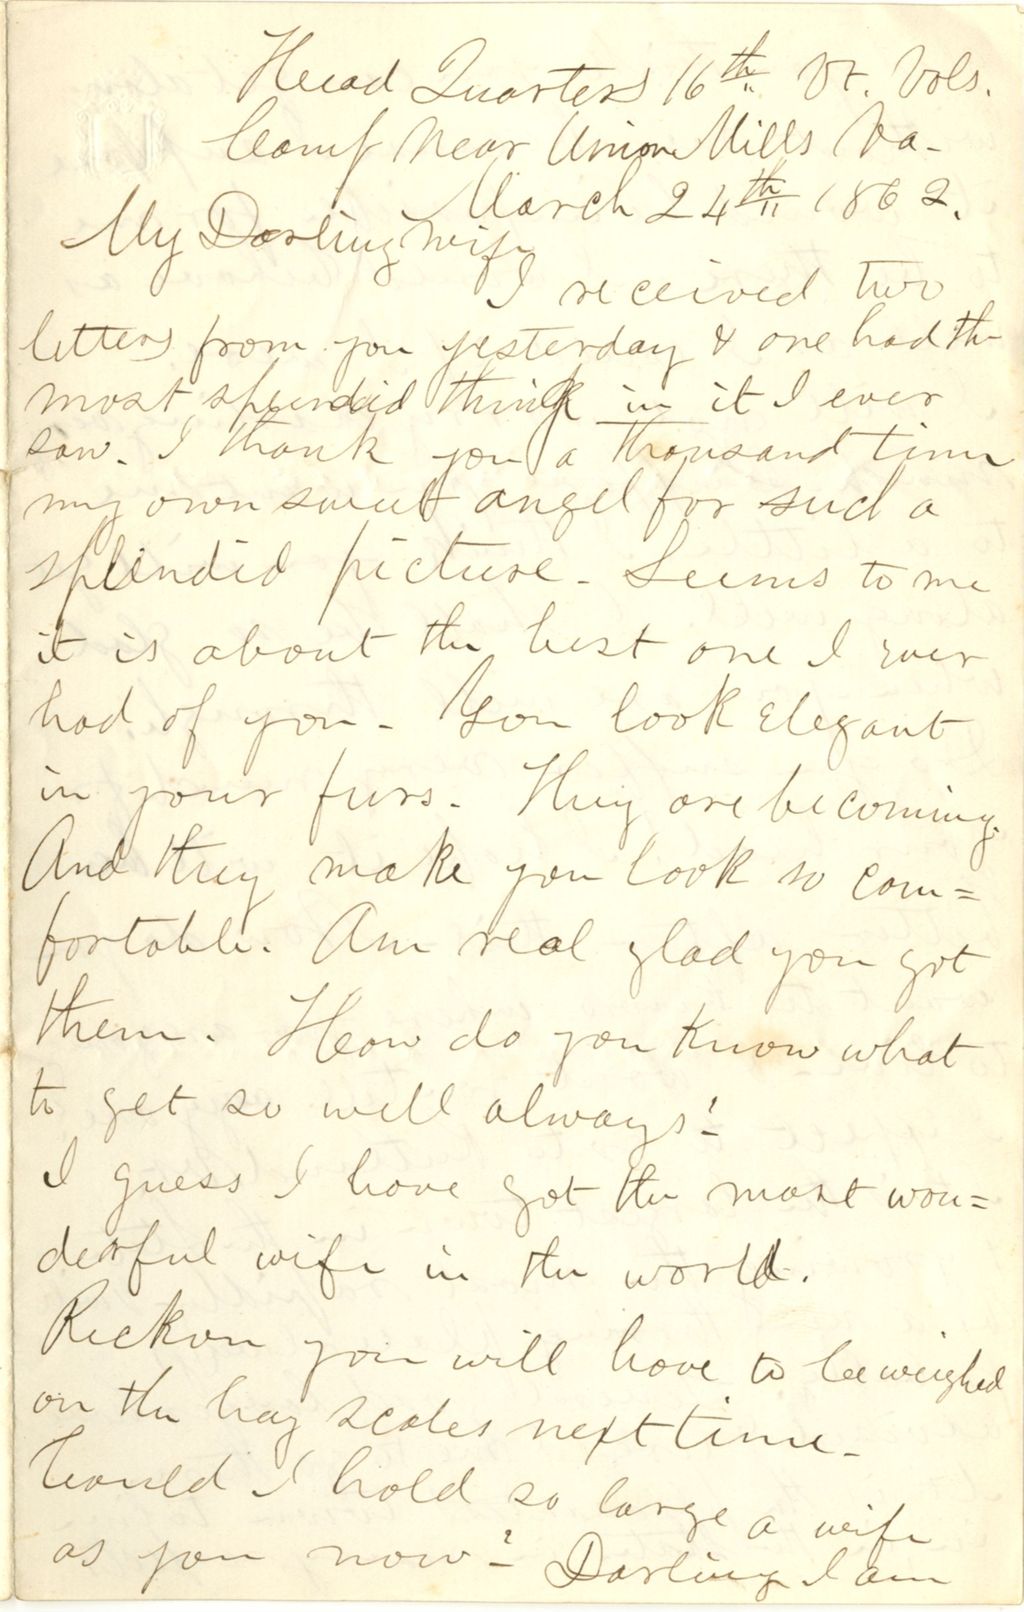 Head Quarters 16th Vt. Vols.
Camp Near Union Mills Va-
March 24th 1863.
My Darling wife
I received two
letters from you yesterday & one had the
most splendid thing in it I ever
saw. I thank you a thousand time
my own sweet angel for such a
splendid picture- Seems to me
it is about the best one I ever
had of you- You look elegant
in your furs. They are becoming.
And they make you look so com=
fortable. Am real glad you got
them. How do you know what
to get so well always!
I guess I have got the most won=
derful wife in the world.
Reckon you will have to be weighed
on the hay scales next time-
Could I hold so large a wife
as you now? Darling I am